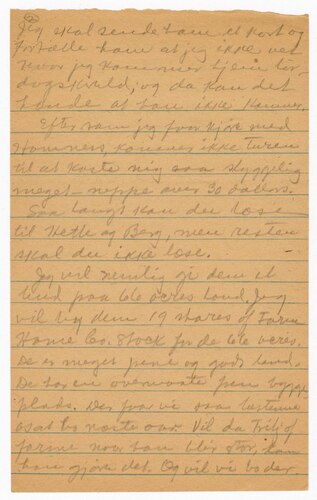 Jeg skal sende ham et kort og
fortælle ham at jeg ikke ved
hvor jeg kommer hjem lør-
dagskveld, og da kan det
hænde at han ikke kommer.
Efter som jeg faar kjøre med
kommer ikke turen
til at koste mig saa
meget - neppe over 30 dollars.
Saa langt kan du læse
til Ketle og Berg, men resten
skal du ikke læse.
Jeg vil nemlig gi dem et
bud paa 66 acres land. Jeg
vil by dem 19 shares of Farm
Home Co. Stock for de 66 acres.
De er meget pene og godt land.
De har en overmaate pen bygge-
plads. Der faar vi saa
os at bo næste aar. Vil da
farme naar han blir stor, kan
han gjøre det. Og vil vi